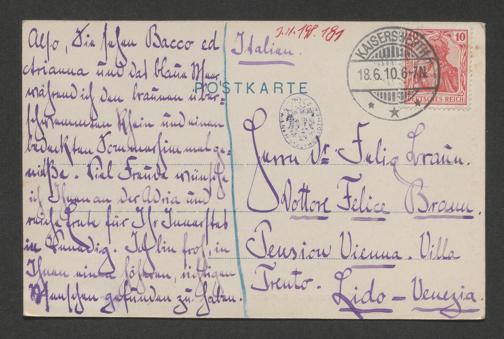 Also, Sie sehen Bacco ed
Arianna und das blaue Meer
während ich den braunen über-
schwemmten Rhein und einen
bedeckten Sommerhimmel ge-
nieße. Viel Freude wünsche
ich Ihnen an der Adria und
reiche Ernte für Ihr Innerstes
in Venedig. Ich bin froh, in
Ihnen einen höheren, richtigen
Menschen gefunden zu haben.
Italien.
POSTKARTE
18.6.10.6-7N.
10
DEUTSCHES REICH
Herrn Dr Felix Braun.
Dottore Felice Braun.
Pension Vienna. Villa
Trento. Lido - Venezia.